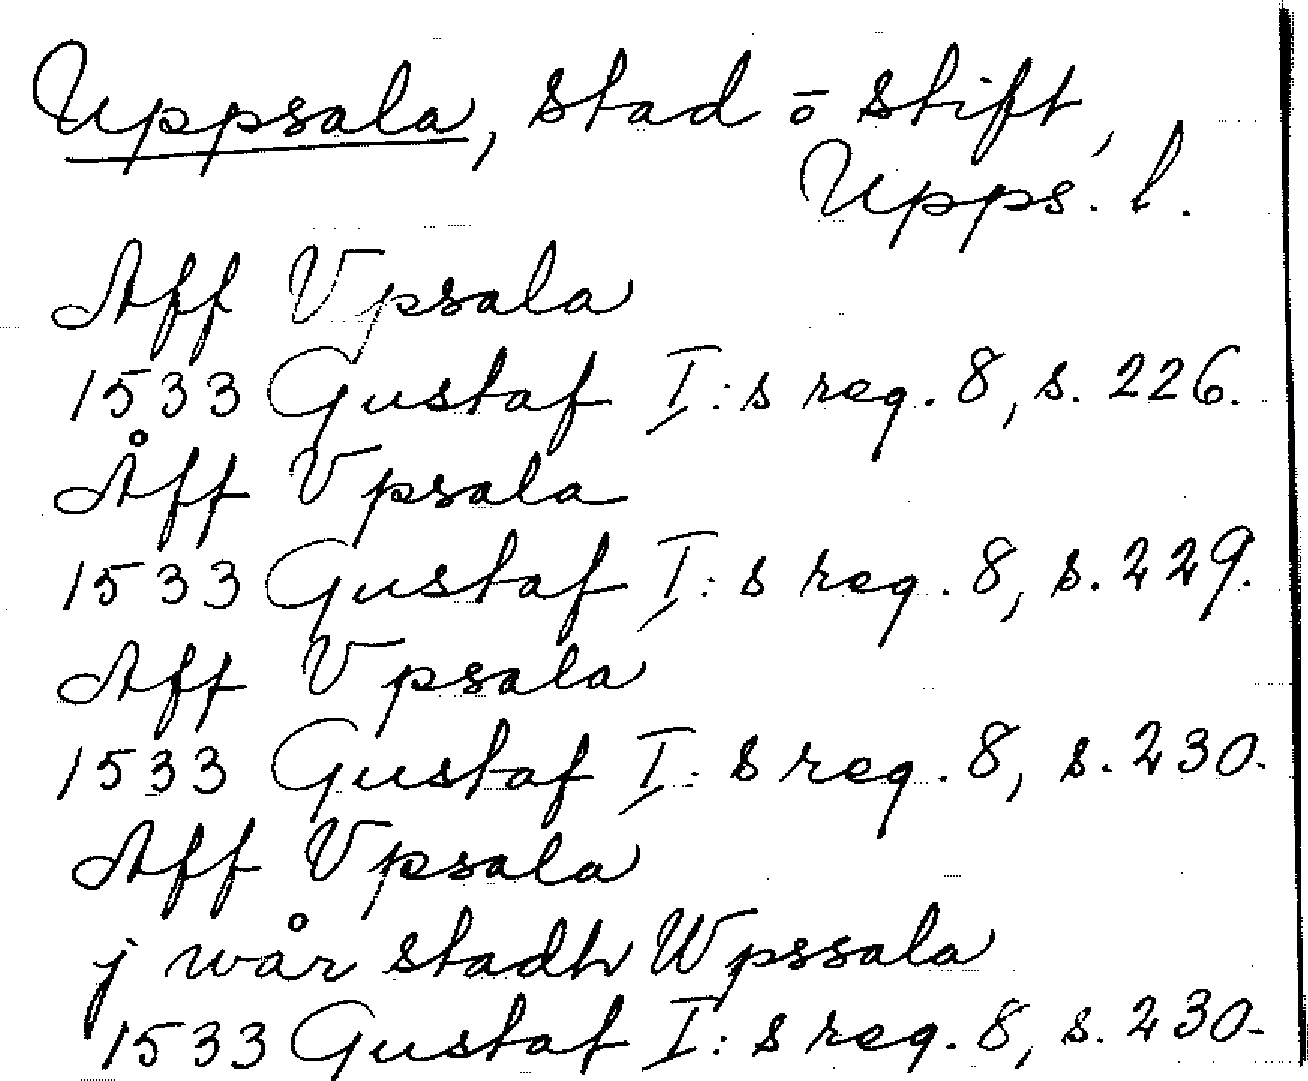 Uppsala, stad o stift,
Upps. l.
Aff Vpsala
1533 Gustaf I:s reg. 8, s. 226.
Åff Vpsala
1533 Gustaf I:s reg. 8, s. 229.
Aff Vpsala
1533 Gustaf I:s reg. 8, s. 230.
Aff Vpsala
j wår stadh Wpssala
1533 Gustaf I:s reg. 8, s. 230.